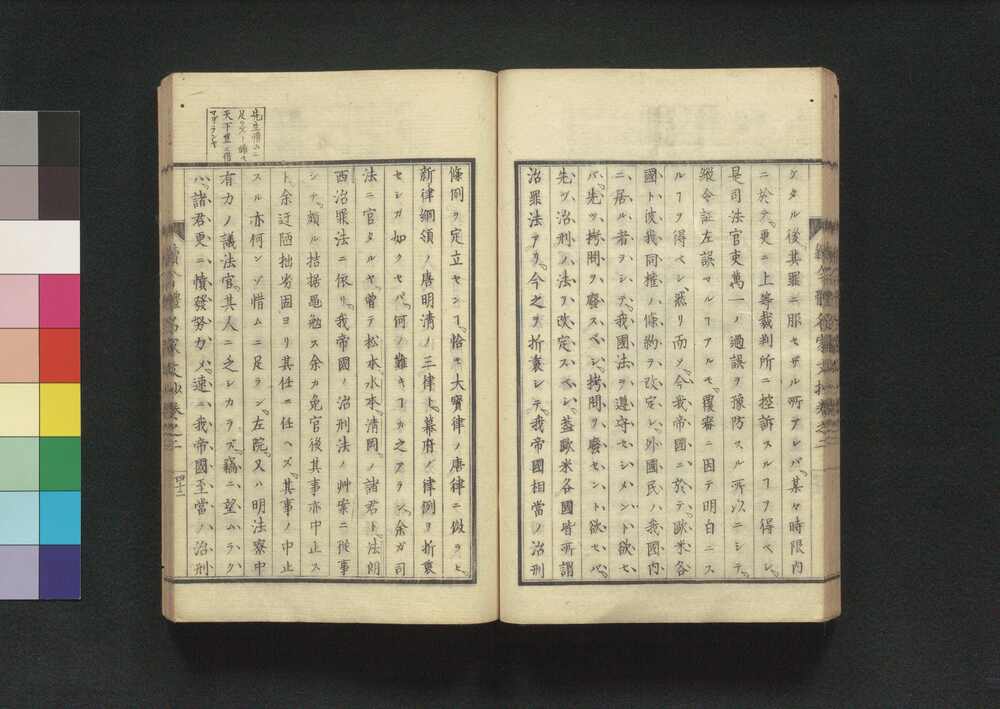 ケタル後其罪ニ服セザル所アレバ某々時限内
ニ於テ更ニ上等裁判所ニ控訴スルヿヲ得ベシ
是司法官吏萬一ノ過誤ヲ豫防スル所以ニシテ
縦令証左誤マルヿアルモ覆審ニ因テ明白ニス
ルヿヲ得ベシ然リ而ソ今我帝國ニ於テ歐米各
國ト彼我同権ノ條約ヲ改定シ外國民ノ我國内
ニ居ル者ヲシテ我國法ヲ遵守セシメント欲セ
バ先ツ拷問ヲ廢スベシ拷問ヲ廢セント欲セバ
先ツ治刑ノ法ヲ改定スベシ蓋歐米各國皆所謂
治罪法アリ今之ヲ折衷シテ我帝國相當ノ治刑
條例ヲ定立センヿ恰モ大寳律ノ唐律ニ似ヨヒ
新律綱領ノ唐明清ノ三律ト幕府ノ律例ヲ折衷
セシガ如クセバ何ノ難キヿカ之アラン余ガ司
法ニ官タルヤ曾テ松水水本清岡ノ諸君ト法朗
西治罪法ニ依リ我帝國ノ治刑法ノ艸案ニ從事
シテ頗ル拮据黽勉ス余カ免官後其事亦中止ス
ト余迂陋拙劣固ヨリ其任ニ任ヘズ其事ノ中止
スル亦何ンゾ惜ムニ足ラン左院又ハ明法寮中
有力ノ議法官其人ニ乏シカラズ竊ニ望ムラク
ハ諸君更ニ憤發努力メ速ニ我帝國至當ノ治刑
先生惜ムニ
天下豈ニ惜
マザランヤ
續今體名家文抄巻之二
四十二